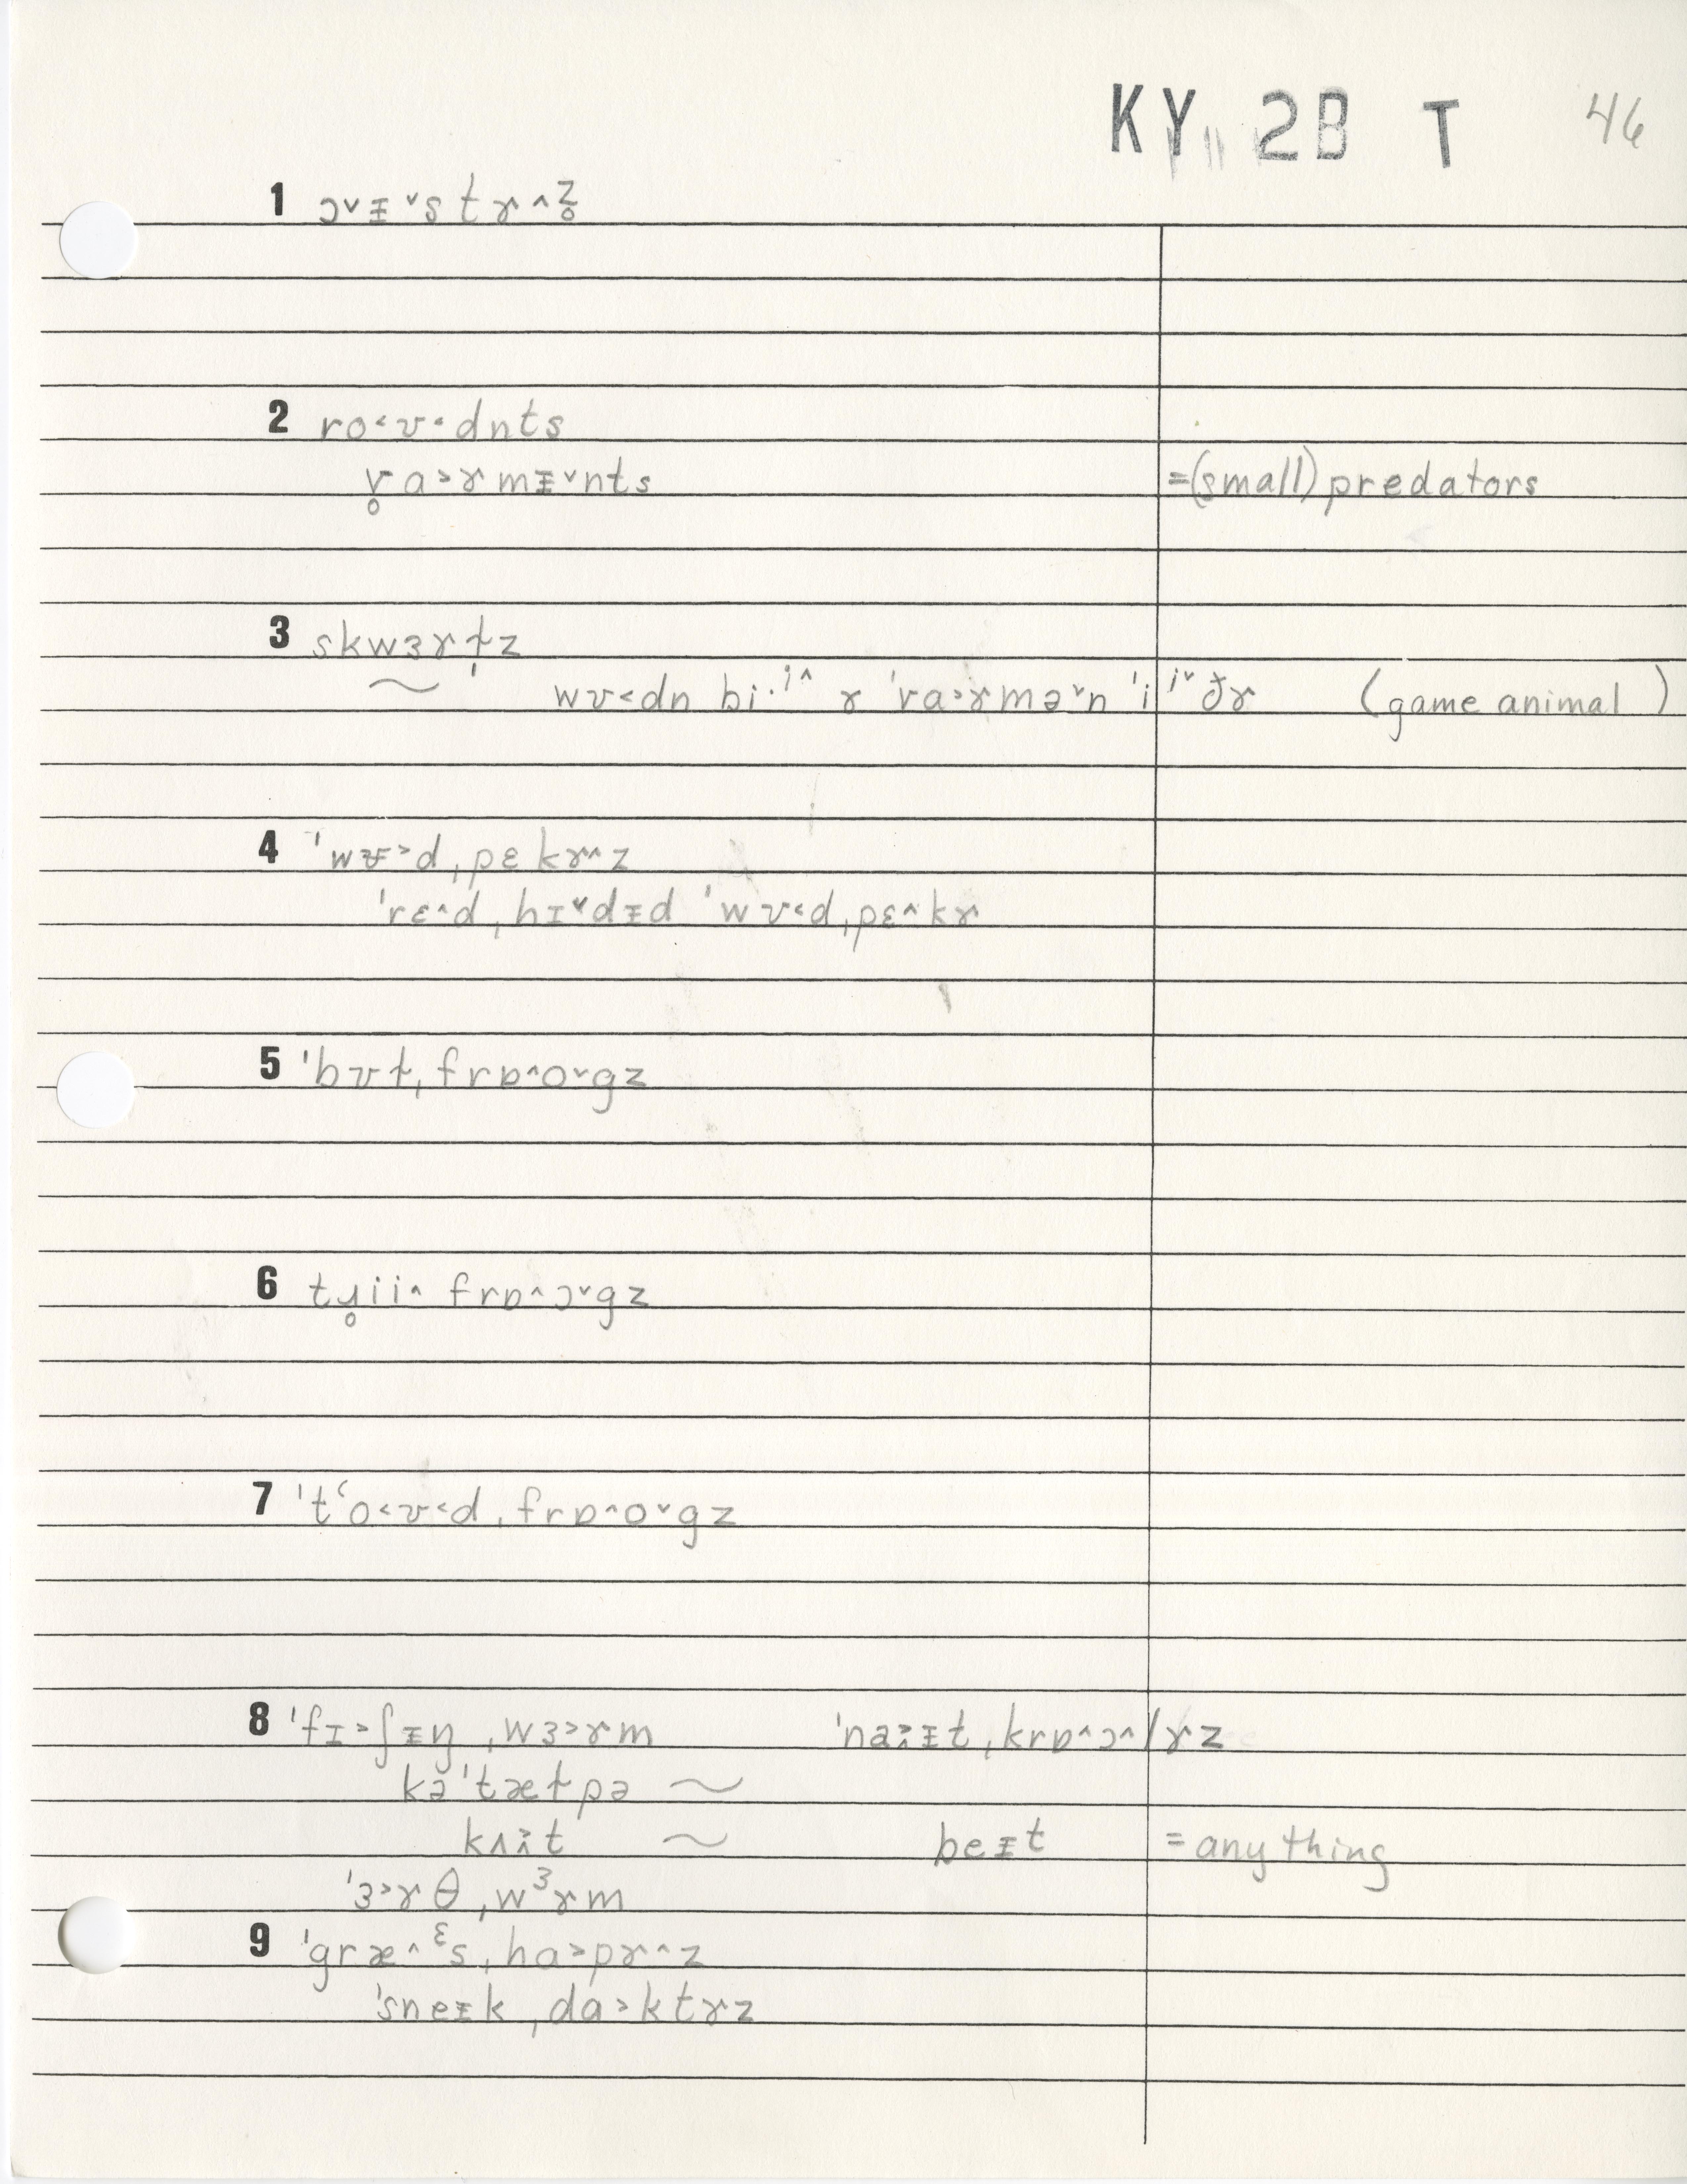 KY 2B T 46
1 ɔ˅ᵻ˅stɤ˄z̥
2 ro˂ʊ˂dnts
v̥a˃ɤmᵻ˅nts =(small) predators
3 skwɜɤɫ̩z
~ wʊ˂dn bi·ⁱ˄ ɤ ˈva˃ɤmə˅n ˈiⁱ˅ðɤ (game animal)
4 ˈwᵿ˃dˌpɛkɤ˄z
ˈrɛ˄dˌhɪ˅dᵻd ˈwʊ˂dˌpɛ˄kɤ
5 ˈbʊɫˌfrɒ˄o˅gz
6 tɹ̥ii˄ frɒ˄ɔ˅gz
7 ˈtʻo˂ʊ˂dˌfrɒ˄o˅gz
8 ˈfɪ˃ʃᵻŋˌwɜ˃ɤm ˈnaᵻtˌkrɒ˄ɔ˄lɤz
kəˈtæɫpə ~
kʌt ~ beᵻt = anything
ˈɜ˃ɤθˌwᶟɤm
9 ˈgræ˄ᵋsˌha˃pɤ˄z
ˈsneᵻkˌda˃ktɤz